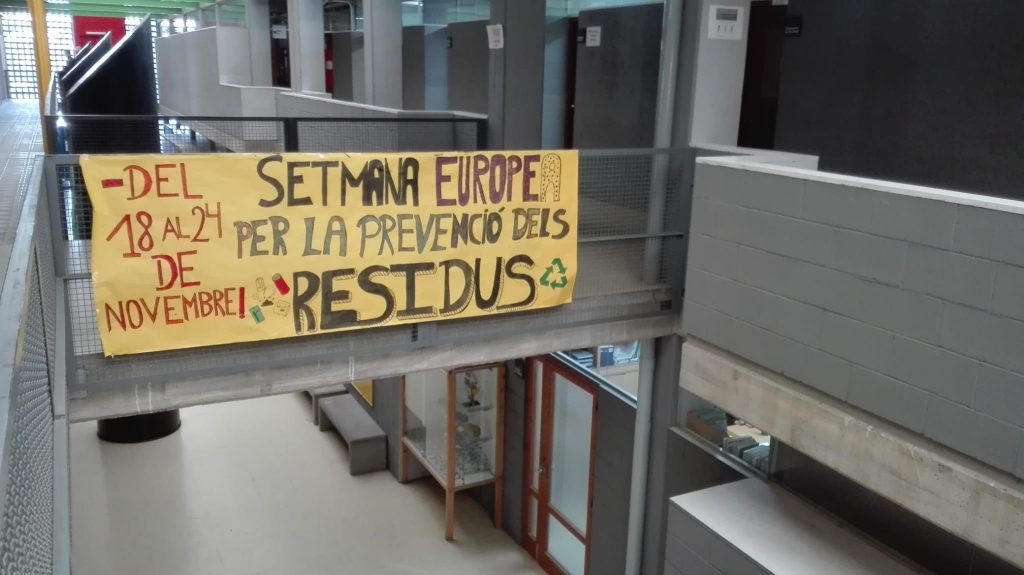 -DEL
18 AL 24
DE
NOVEMBRE!
SETMANA EUROPEA
PER LA PREVENCIÓ DELS
RESIDUS